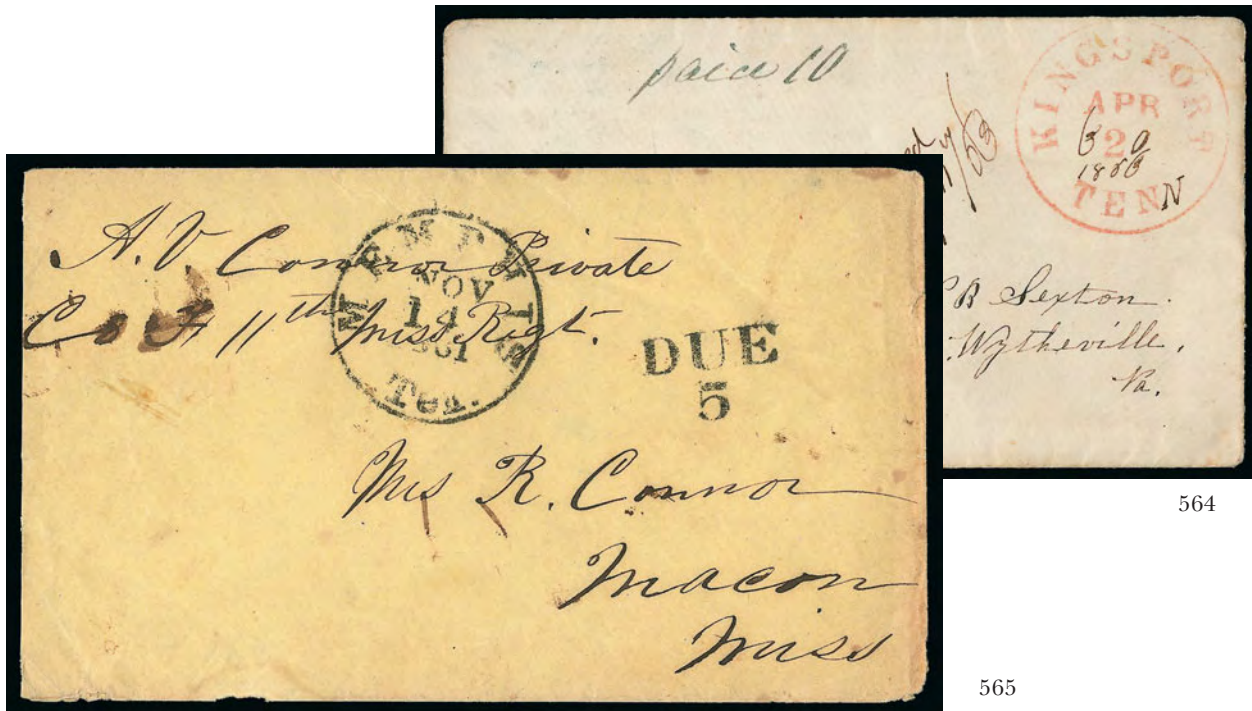 paid 10
KINGSPORT
APR
20
1863
TENN
B Sexton.
Wytheville,
Va.
A. V. Connor Private
Co F 11th Miss Regt.
MEMPHIS
NOV
14
1861
Ten.
DUE
5
Mrs R. Connor
Macon
Miss
564
565